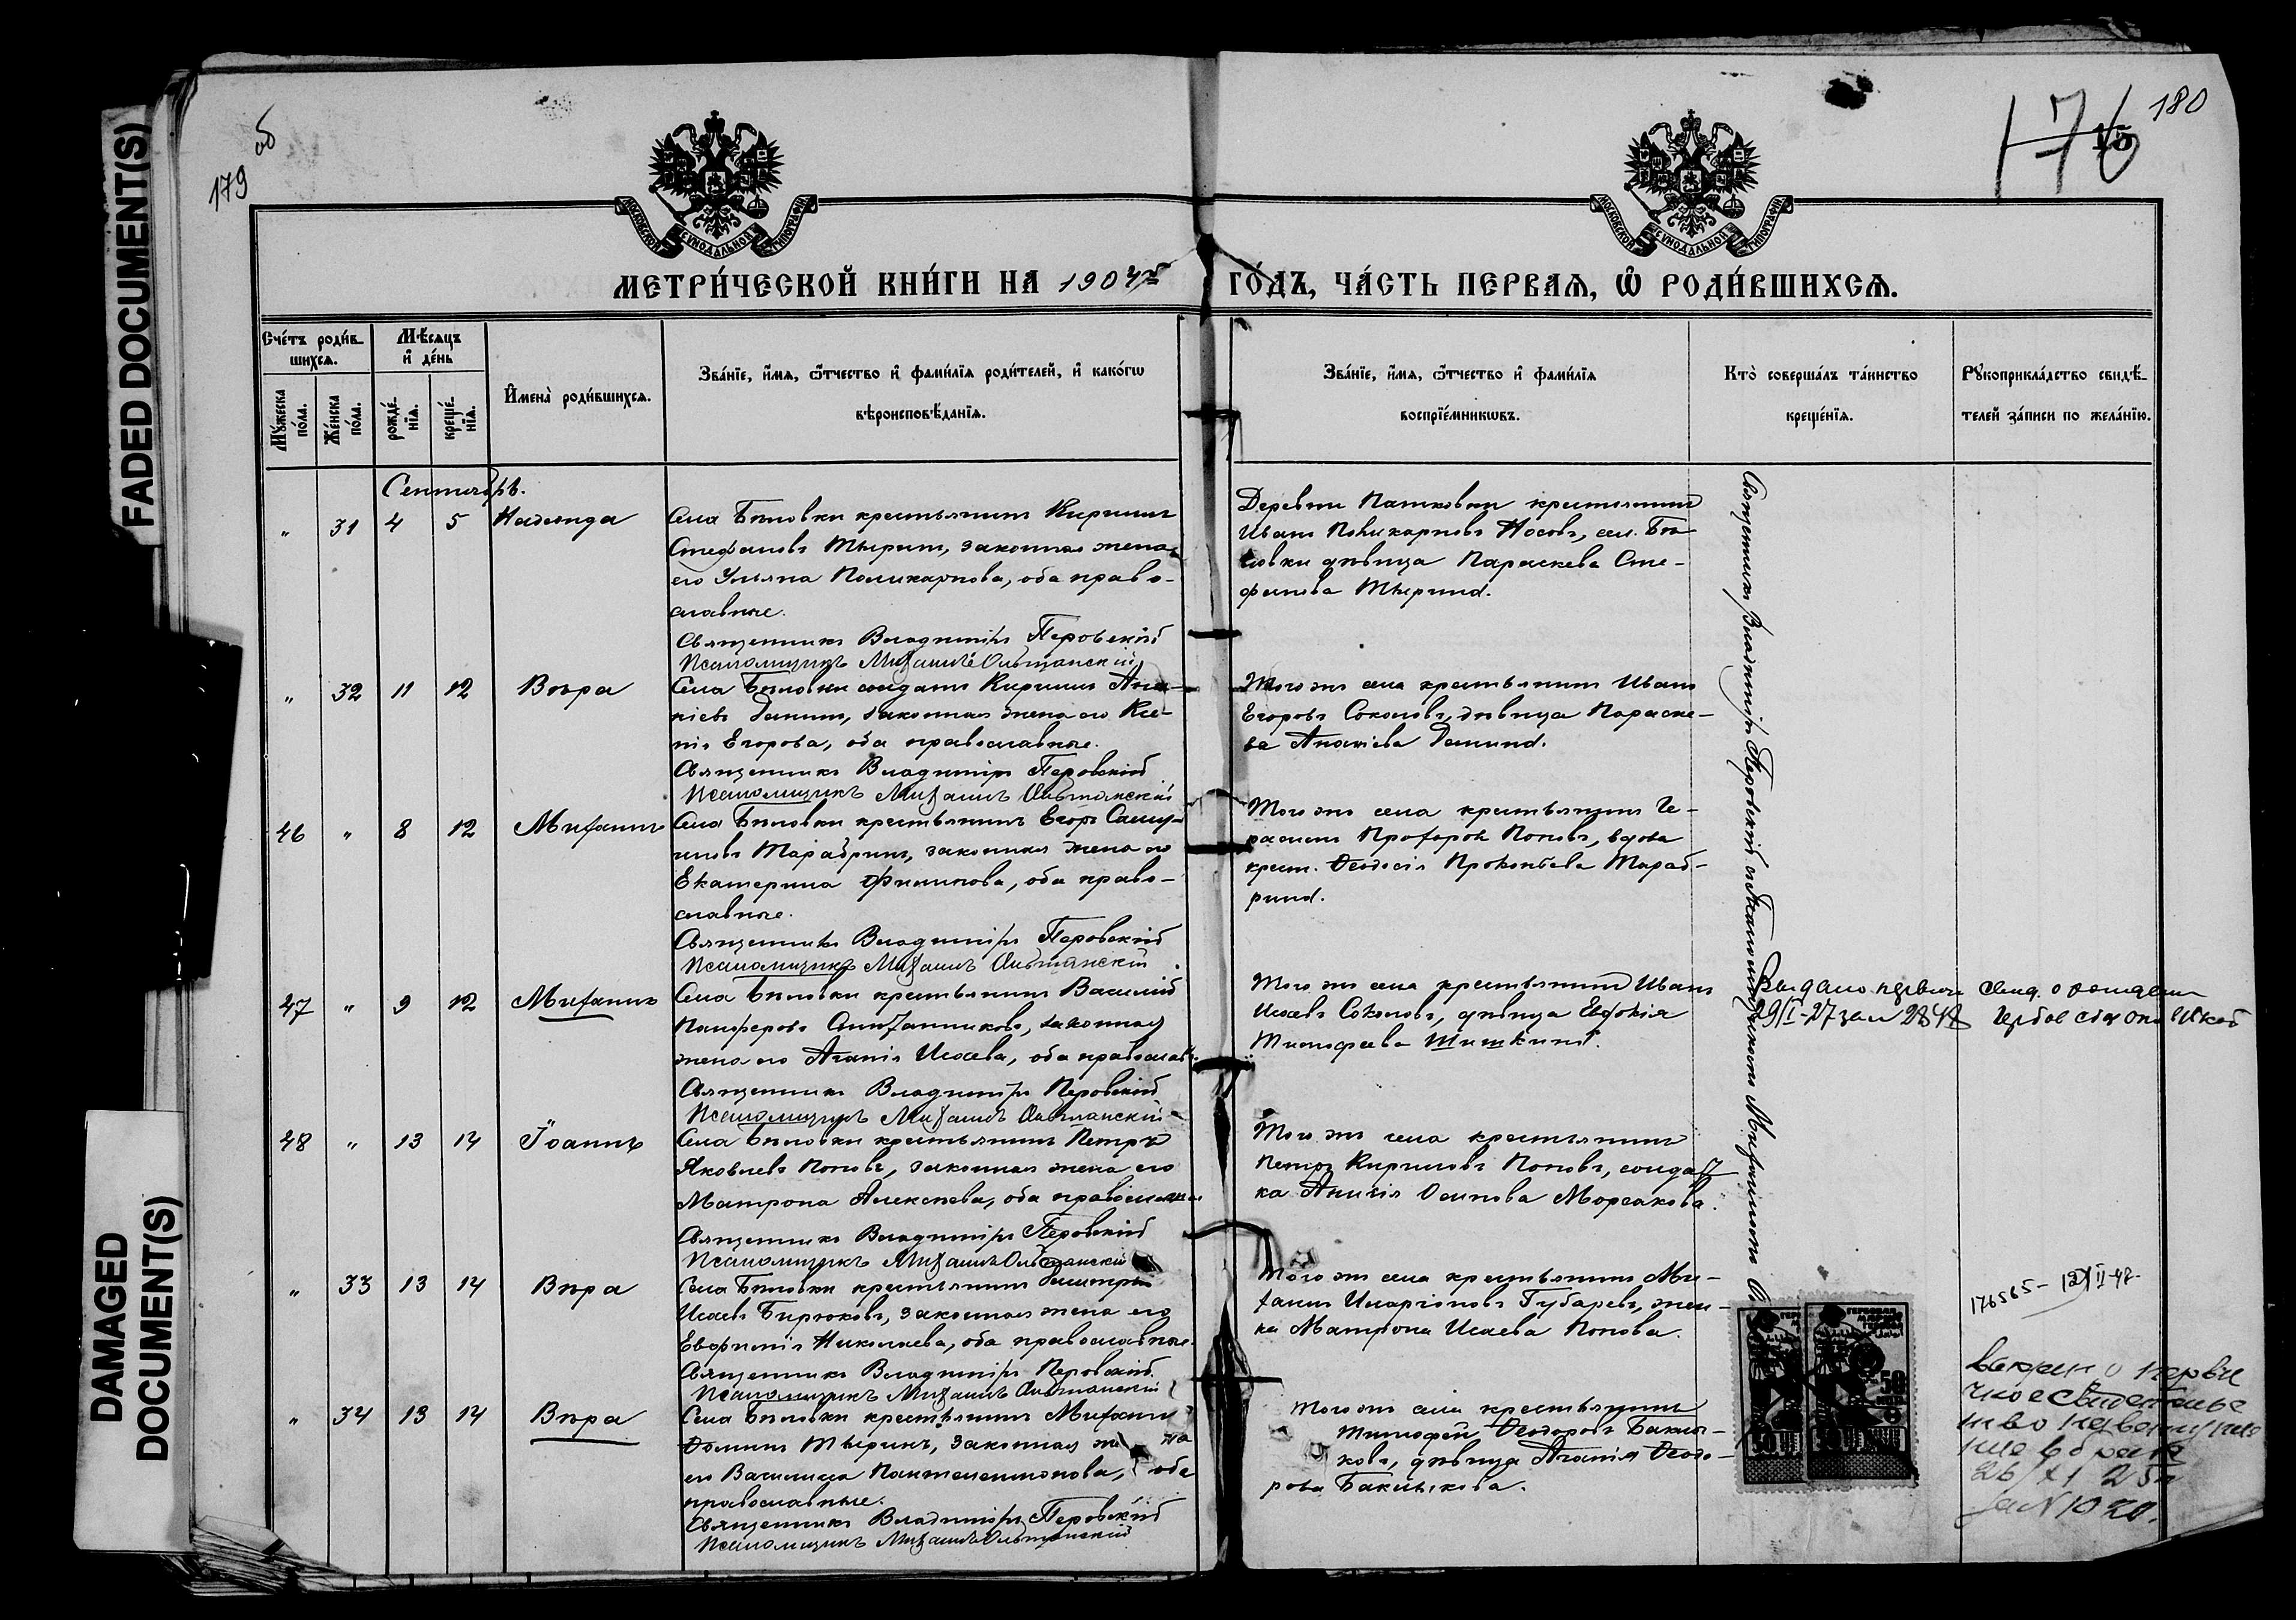 FADED DOCUMENT(S)
DAMAGED
DOCUMENT(S)
179
об
180
176
15
МОСКОВСКОЙ СѴНОДАЛЬНОЙ ТИПОГРАФІИ
МОСКОВСКОЙ СѴНОДАЛЬНОЙ ТИПОГРАФІИ
МЕТРИ́ЧЕСКОЙ КНИ́ГИ НА 1904й ГО́ДЪ, ЧА́СТЬ ПЕРВАѦ, Ѡ҆ РОДИ́ВШИХСѦ.
Сче́тъ роди́в-
шихсѧ.
Мѣсѧцъ
и҆ де́нь
Му́жеска
по́ла.
Же́нска
по́ла.
рожде́-
нїѧ.
креще́-
нїѧ.
И҆мена̀ роди́вшихсѧ.
Зва́нїе, и҆́мѧ, ѻ҆́тчество и҆ фами́лїѧ роди́телей, и҆ како́гѡ
вѣроисповѣ́данїѧ.
Зва́нїе, и҆́мѧ, ѻ҆́тчество и҆ фами́лїѧ
воспрїе́мникѡвъ.
Кто̀ соверша́лъ та́инство
креще́нїѧ.
Рꙋкоприкла́дство свидѣ́-
телей за́писи по жела́нїю.
Сентябрь.
" 31 4 5 Надежда
Села Бѣловки крестьянинъ Кириллъ
Стефановъ Тыринъ, законная жена
его Ульяна Поликарпова, оба право-
славные.
Священникъ Владиміръ Перовскій
Псаломщикъ Михаилъ Ольшанскій
Деревни Пашковки крестьянинъ
Иванъ Поликарповъ Носовъ, сел. Бѣ-
ловки дѣвица Параскева Сте-
фанова Тырина.
" 32 11 12 Вѣра
Села Бѣловки солдатъ Кириллъ Ана-
ніевъ Деминъ, законная жена его Ксе-
нія Егорова, оба православные.
Священникъ Владиміръ Перовскій
Псаломщикъ Михаилъ Ольшанскій
Того же села крестьянинъ Иванъ
Егоровъ Соколовъ, дѣвица Параске-
ва Ананіева Демина.
46 " 8 12 Михаилъ
Села Бѣловки крестьянинъ Егоръ Самуи-
ловъ Тарабринъ, законная жена его
Екатерина Филипова, оба право-
славные.
Священникъ Владиміръ Перовскій
Псаломщикъ Михаилъ Ольшанскій
Того же села крестьянинъ Ге-
расимъ Прохоровъ Поповъ, вдова
крест. Ѳеодосія Прокопьева Тараб-
рина.
47 " 9 12 Михаилъ
Села Бѣловки крестьянинъ Василій
Панферовъ, законная
жена его Агапія Исаева, оба православ.
Священникъ Владиміръ Перовскій
Псаломщикъ Михаилъ Ольшанскій
Того же села крестьянинъ Иванъ
Исаевъ Соколовъ, дѣвица Евдокія
Тимофеева Шишкина.
Выдано первич свид. о рождени
9/I-27 за № 2848
48 " 13 14 Іоаннъ
Села Бѣловки крестьянинъ Петръ
Яковлевъ Поповъ, законная жена его
Матрона Алексѣева, оба православные
Священникъ Владиміръ Перовскій
Псаломщикъ Михаилъ Ольшанскій
Того же села крестьянинъ
Петръ Кириловъ Поповъ, солдат-
ка Анисія Осипова Морсакова.
" 33 13 14 Вѣра
Села Бѣловки крестьянинъ Димитрій
Исаевъ Бирюковъ, законная жена его
Евфимія Николаева, оба православные.
Священникъ Владиміръ Перовскій
Псаломщикъ Михаилъ Ольшанскій
Того же села крестьянинъ Ми-
хаилъ Иларіоновъ Губаревъ, жен-
ка Матрона Исаева Попова.
" 34 13 14 Вѣра
Села Бѣловки крестьянинъ Михаилъ
Ѳоминъ Тыринъ, законная жена
его Василиса Пантелеимонова, оба
православные.
Священникъ Владиміръ Перовскій
Псаломщикъ Михаилъ Ольшанскій
Того же села крестьянинъ
Тимофей Ѳеодоровъ Баклы-
ковъ, дѣвица Агапія Ѳеодо-
рова Баклыкова.
Священникъ Владиміръ Перовскій съ Псаломщикомъ Михаиломъ
176565-
за N 1020.